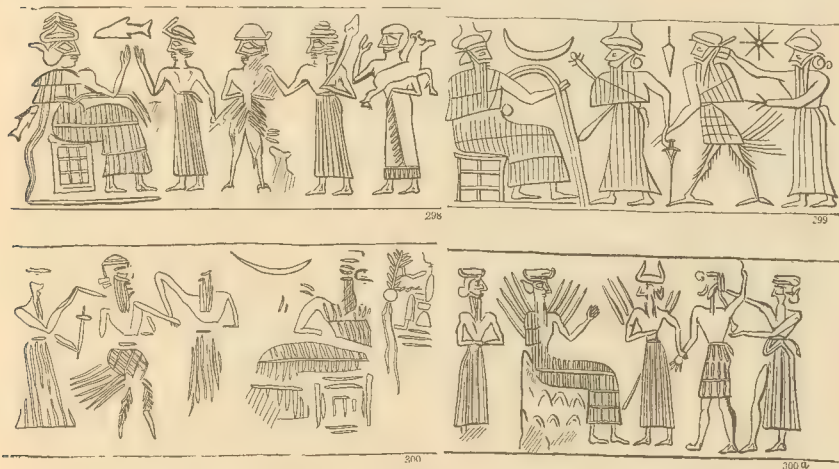 298
299
300
300 a